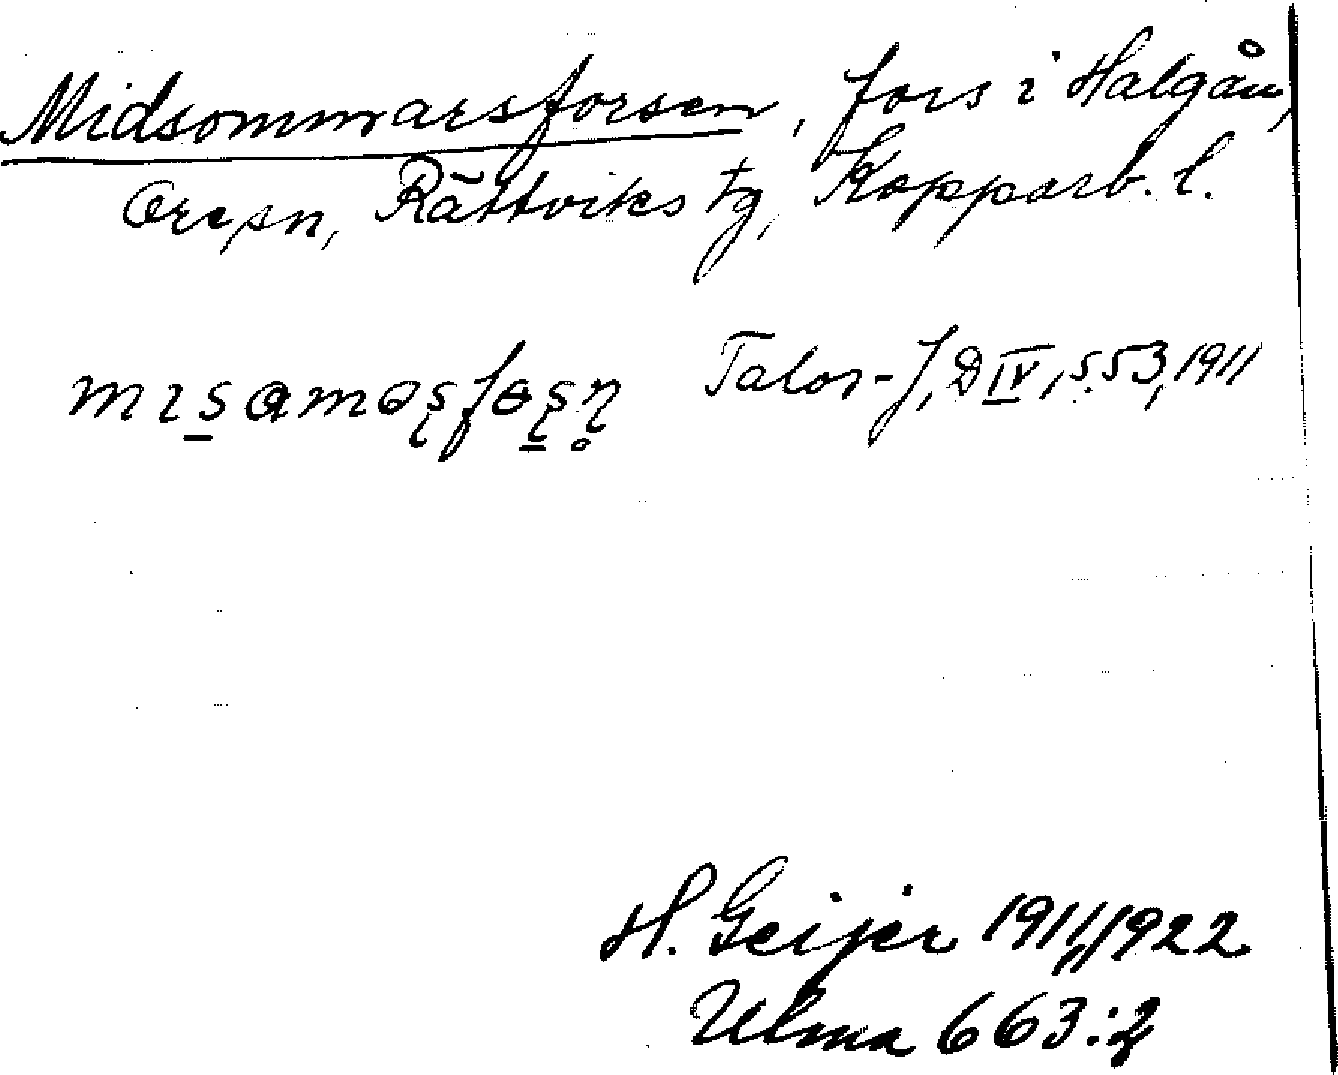 Midsommarsforsen, fors i Halgån,
Ore sn, Rättviks tg, Kopparb. l.
Talos-J, D IV, s. 53, 1911
H. Geijer 1911, 1922
Ulma 663:2